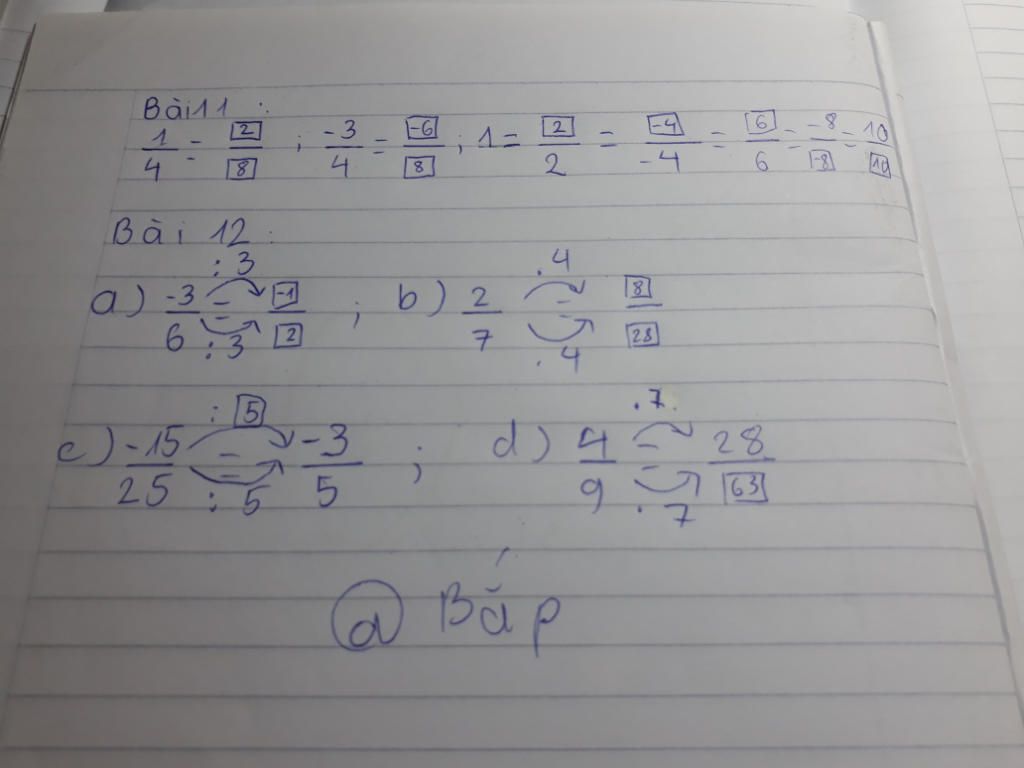 Bài 11 :
1/4 = 2/8 ; -3/4 = -6/8 ; 1 = 2/2 = -4/-4 = 6/6 = -8/-8 = 10/10
Bài 12 :
: 3 . 4
a) -3/6 = -1/2 ; b) 2/7 = 8/28
: 3 . 4
: 5 . 7
c) -15/25 = -3/5 ; d) 4/9 = 28/63
: 5 . 7
@ Bắp